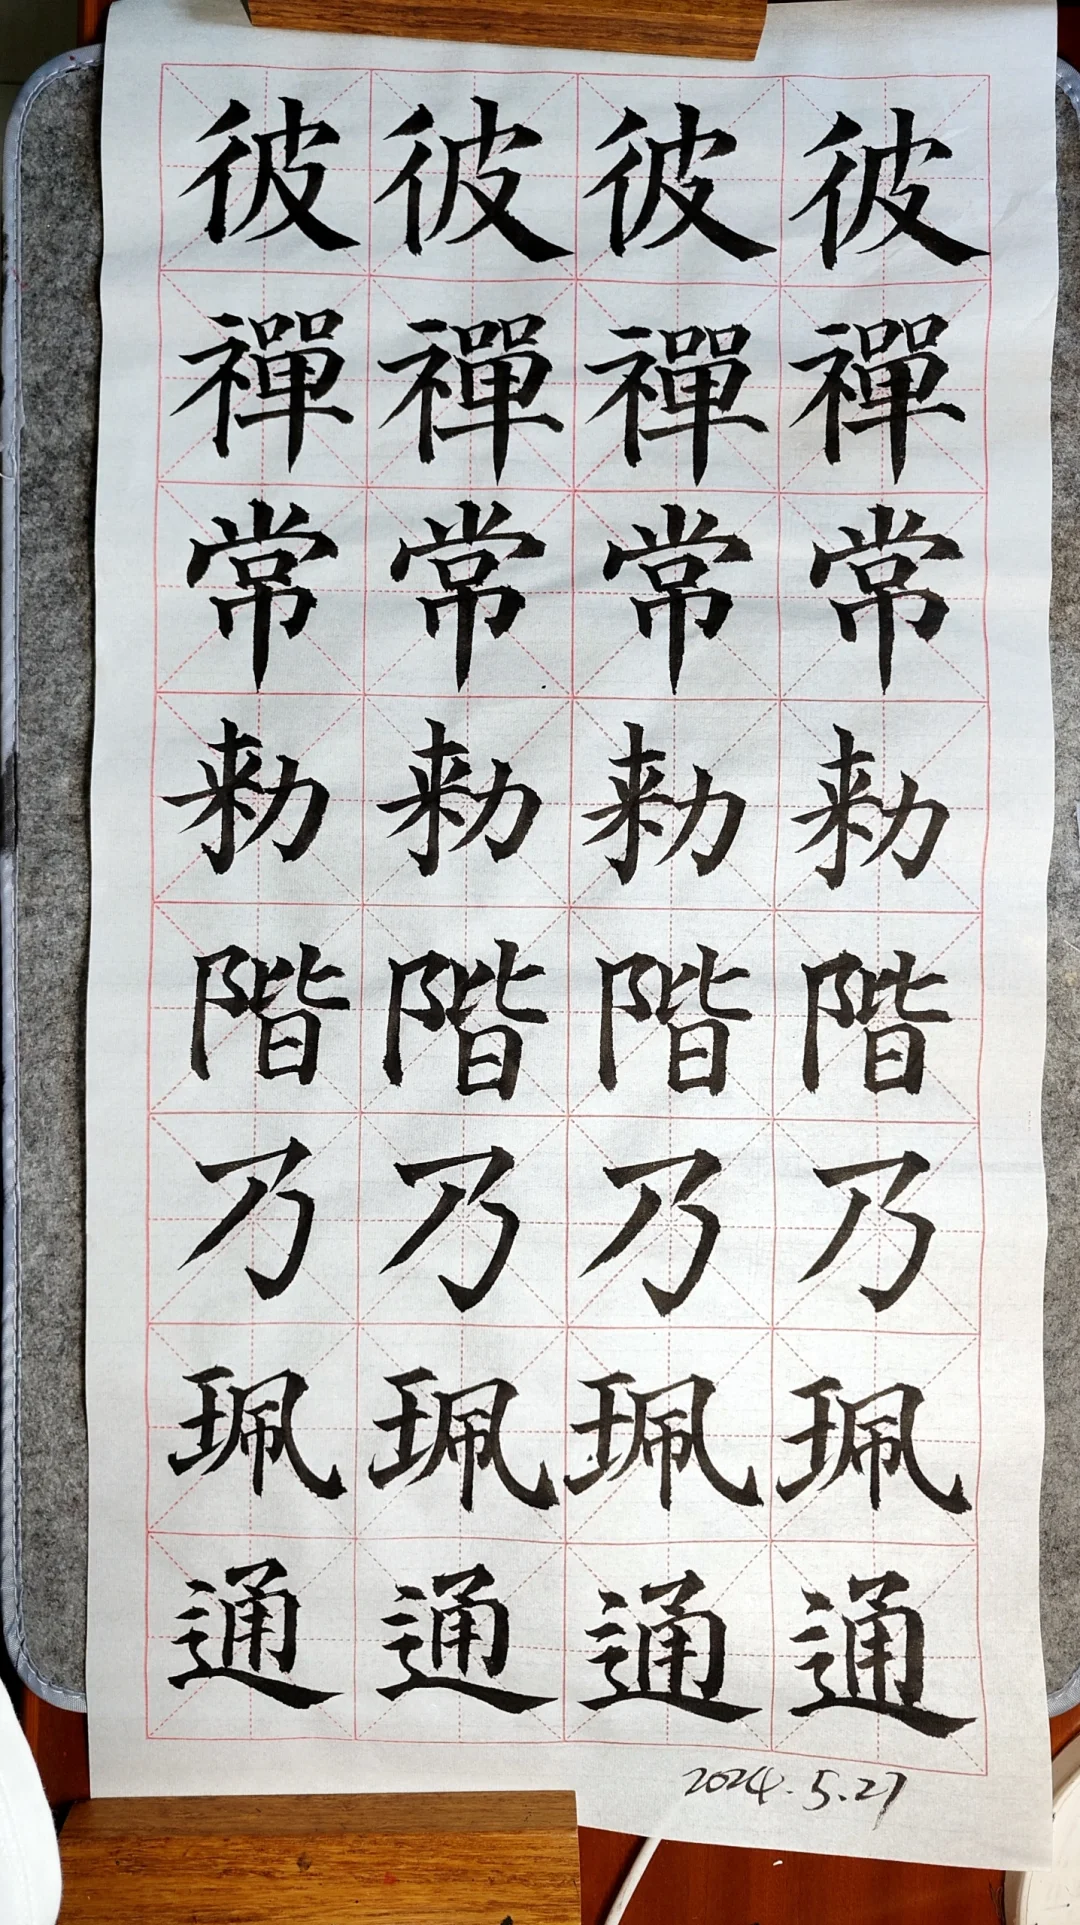 彼彼彼彼
禪禪禪禪
常常常常
勑勑勑勑
階階階階
乃乃乃乃
珮珮珮珮
通通通通
2024.5.27